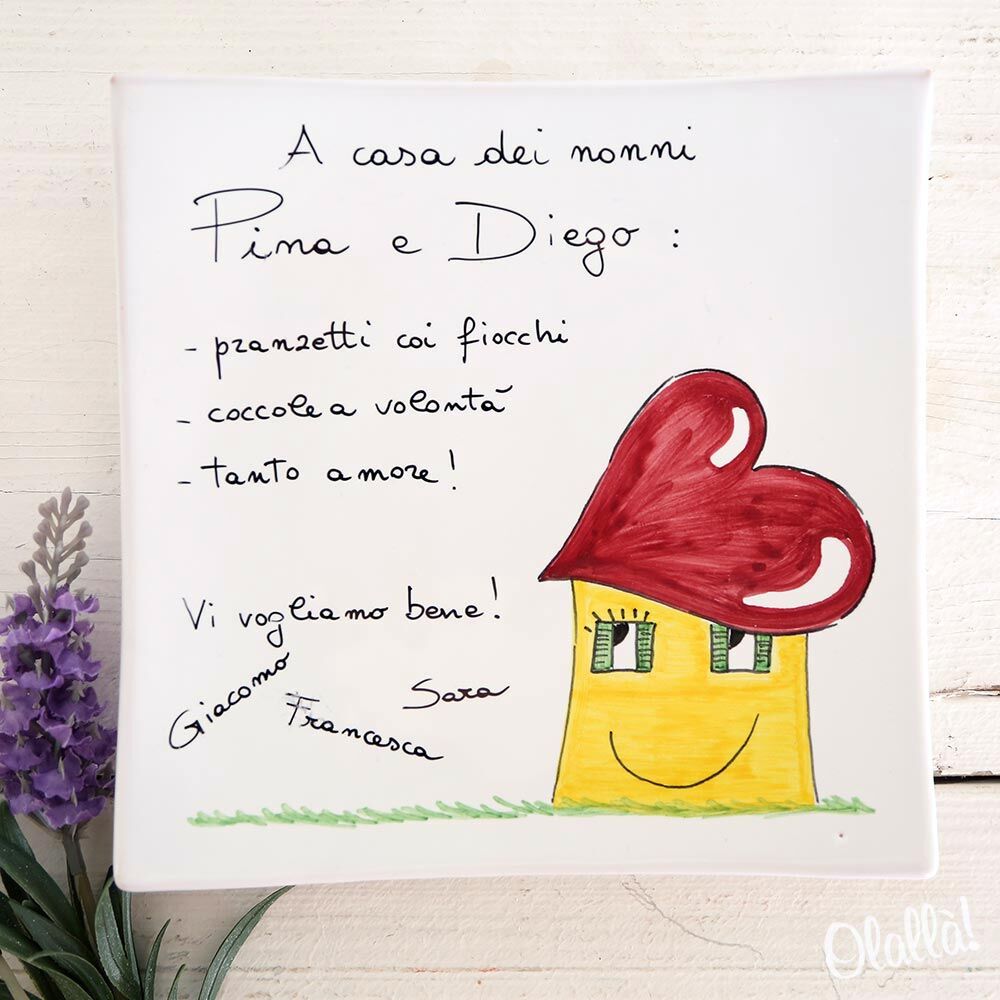 A casa dei nonni
Pina e Diego :
- pranzetti coi fiocchi
- coccole a volontà
- tanto amore!
Vi vogliamo bene!
Giacomo
Francesca
Sara
Olallà!